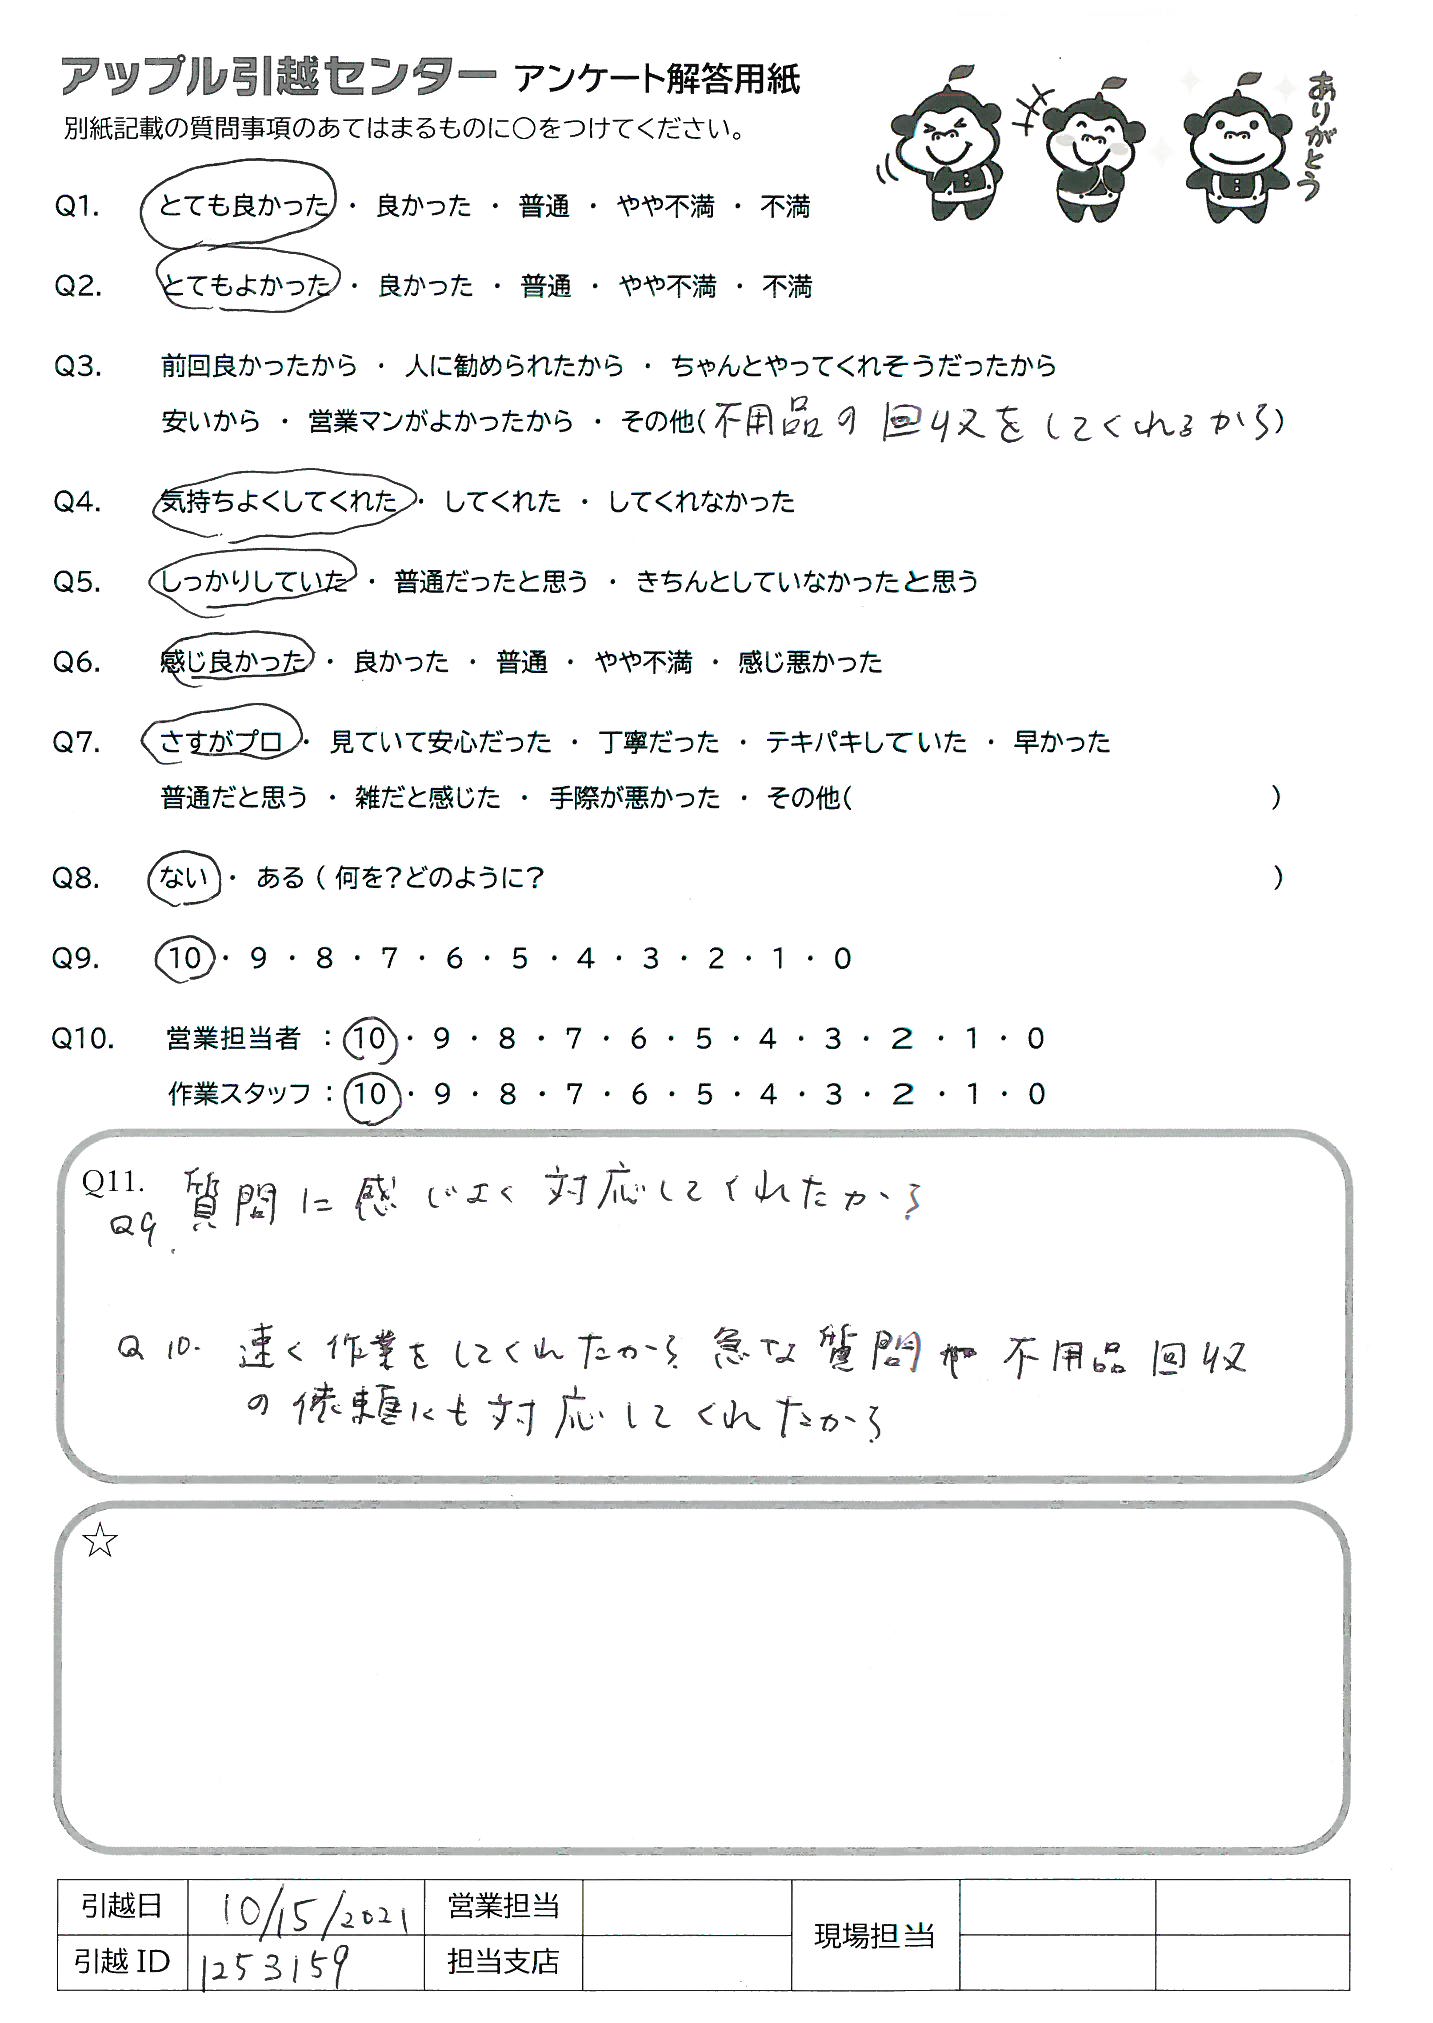 アップル引越センター アンケート解答用紙
別紙記載の質問事項のあてはまるものに○をつけてください。
ありがとう
Q1. とても良かった ・ 良かった ・ 普通 ・ やや不満 ・ 不満
Q2. とてもよかった ・ 良かった ・ 普通 ・ やや不満 ・ 不満
Q3. 前回良かったから ・ 人に勧められたから ・ ちゃんとやってくれそうだったから
安いから ・ 営業マンがよかったから ・ その他(不用品の回収をしてくれるから)
Q4. 気持ちよくしてくれた ・ してくれた ・ してくれなかった
Q5. しっかりしていた ・ 普通だったと思う ・ きちんとしていなかったと思う
Q6. 感じ良かった ・ 良かった ・ 普通 ・ やや不満 ・ 感じ悪かった
Q7. さすがプロ ・ 見ていて安心だった ・ 丁寧だった ・ テキパキしていた ・ 早かった
普通だと思う ・ 雑だと感じた ・ 手際が悪かった ・ その他( )
Q8. ない ・ ある ( 何を?どのように? )
Q9. 10 ・ 9 ・ 8 ・ 7 ・ 6 ・ 5 ・ 4 ・ 3 ・ 2 ・ 1 ・ 0
Q10. 営業担当者 : 10 ・ 9 ・ 8 ・ 7 ・ 6 ・ 5 ・ 4 ・ 3 ・ 2 ・ 1 ・ 0
作業スタッフ : 10 ・ 9 ・ 8 ・ 7 ・ 6 ・ 5 ・ 4 ・ 3 ・ 2 ・ 1 ・ 0
Q11.
Q9. 質問に感じよく対応してくれたから
Q10. 速く作業をしてくれたから 急な質問や不用品回収
の依頼にも対応してくれたから
☆
引越日 10/15/2021 営業担当 現場担当
引越ID 1253159 担当支店